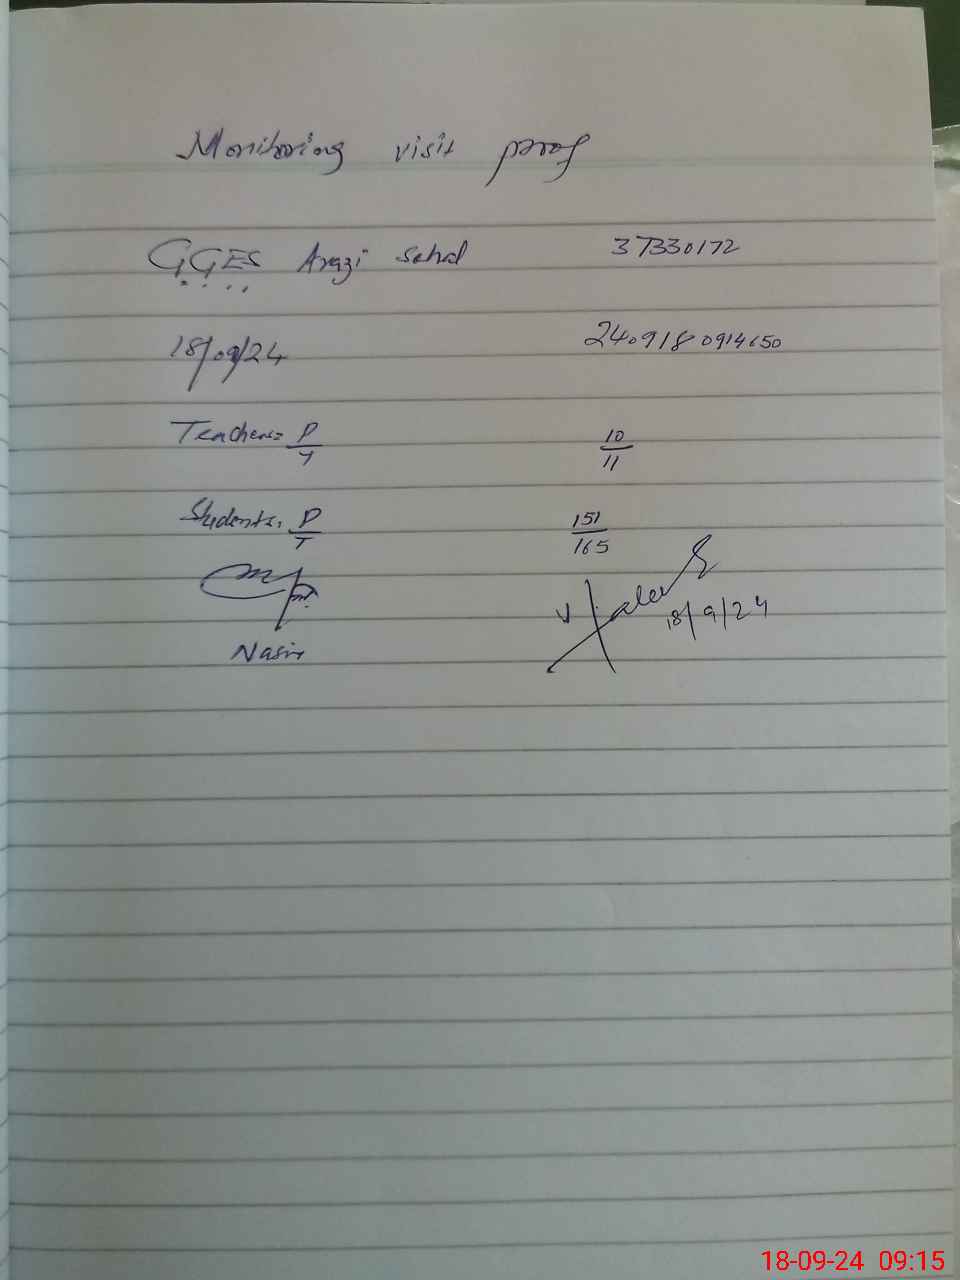 Monitoring visit proof
GGES Arazi Sohal 37330172
18/09/24 240918 0914650
Teachers= P/T 10/11
Students= P/T 151/165
18/9/24
Nasir
18-09-24 09:15